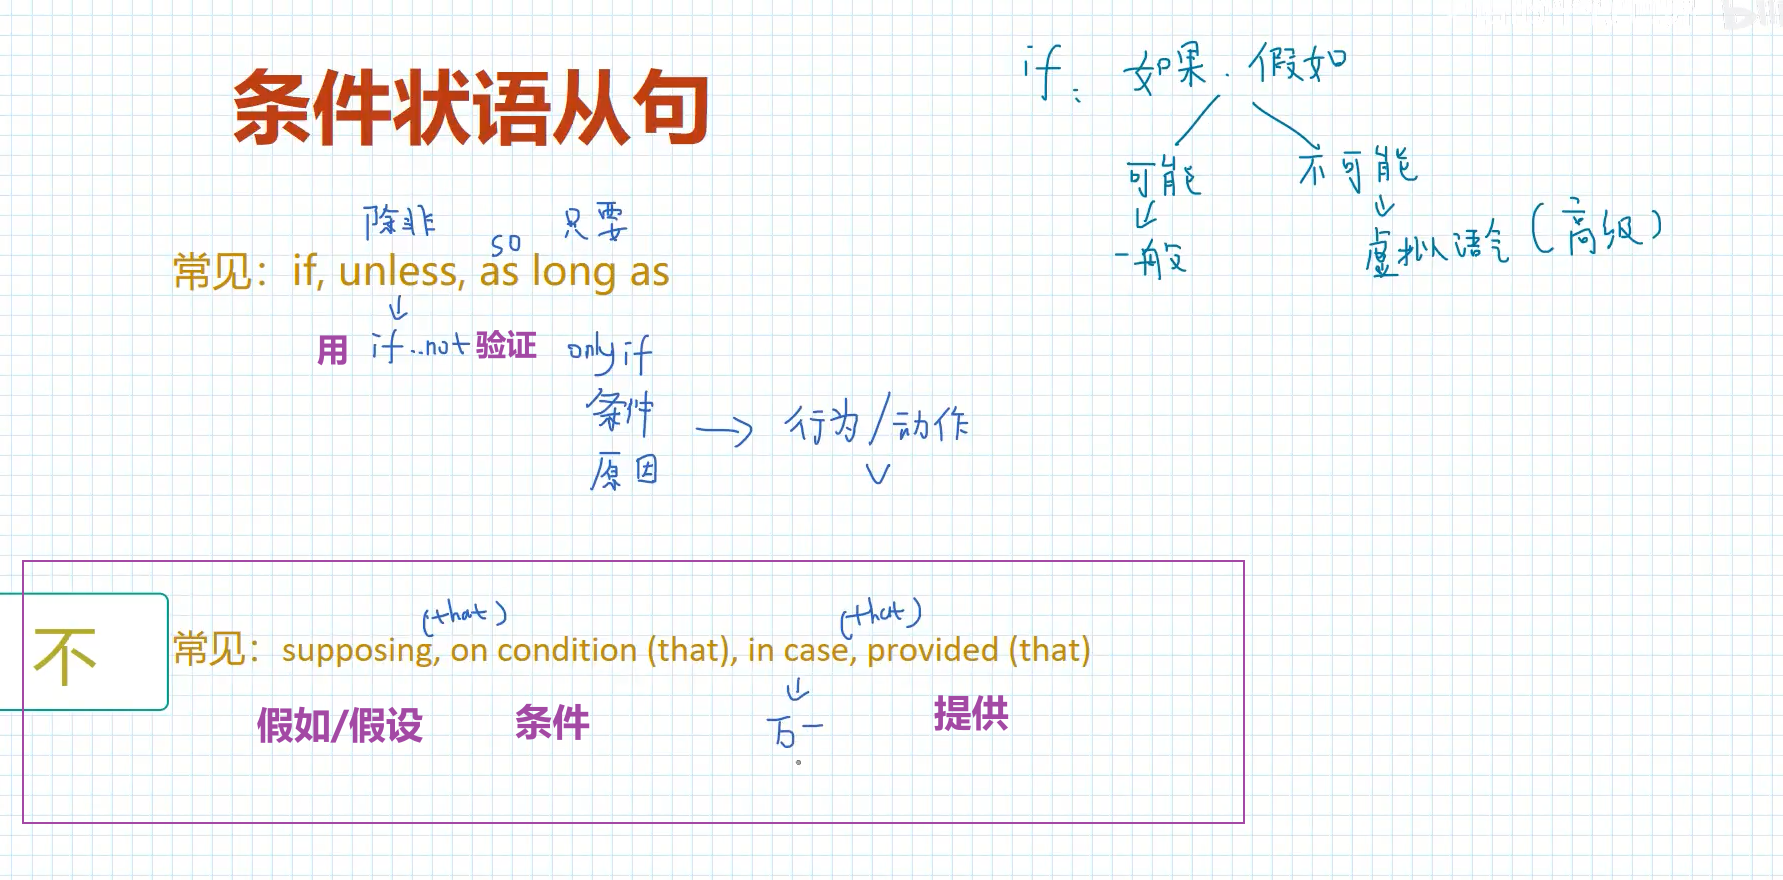 条件状语从句
if: 如果. 假如
可能 不可能
一般 虚拟语气(高级)
除非 so 只要
常见：if, unless, as long as
用 if..not 验证 only if
条件
原因 → 行为/动作
(that) (that)
不 常见：supposing, on condition (that), in case, provided (that)
假如/假设 条件 万一 提供